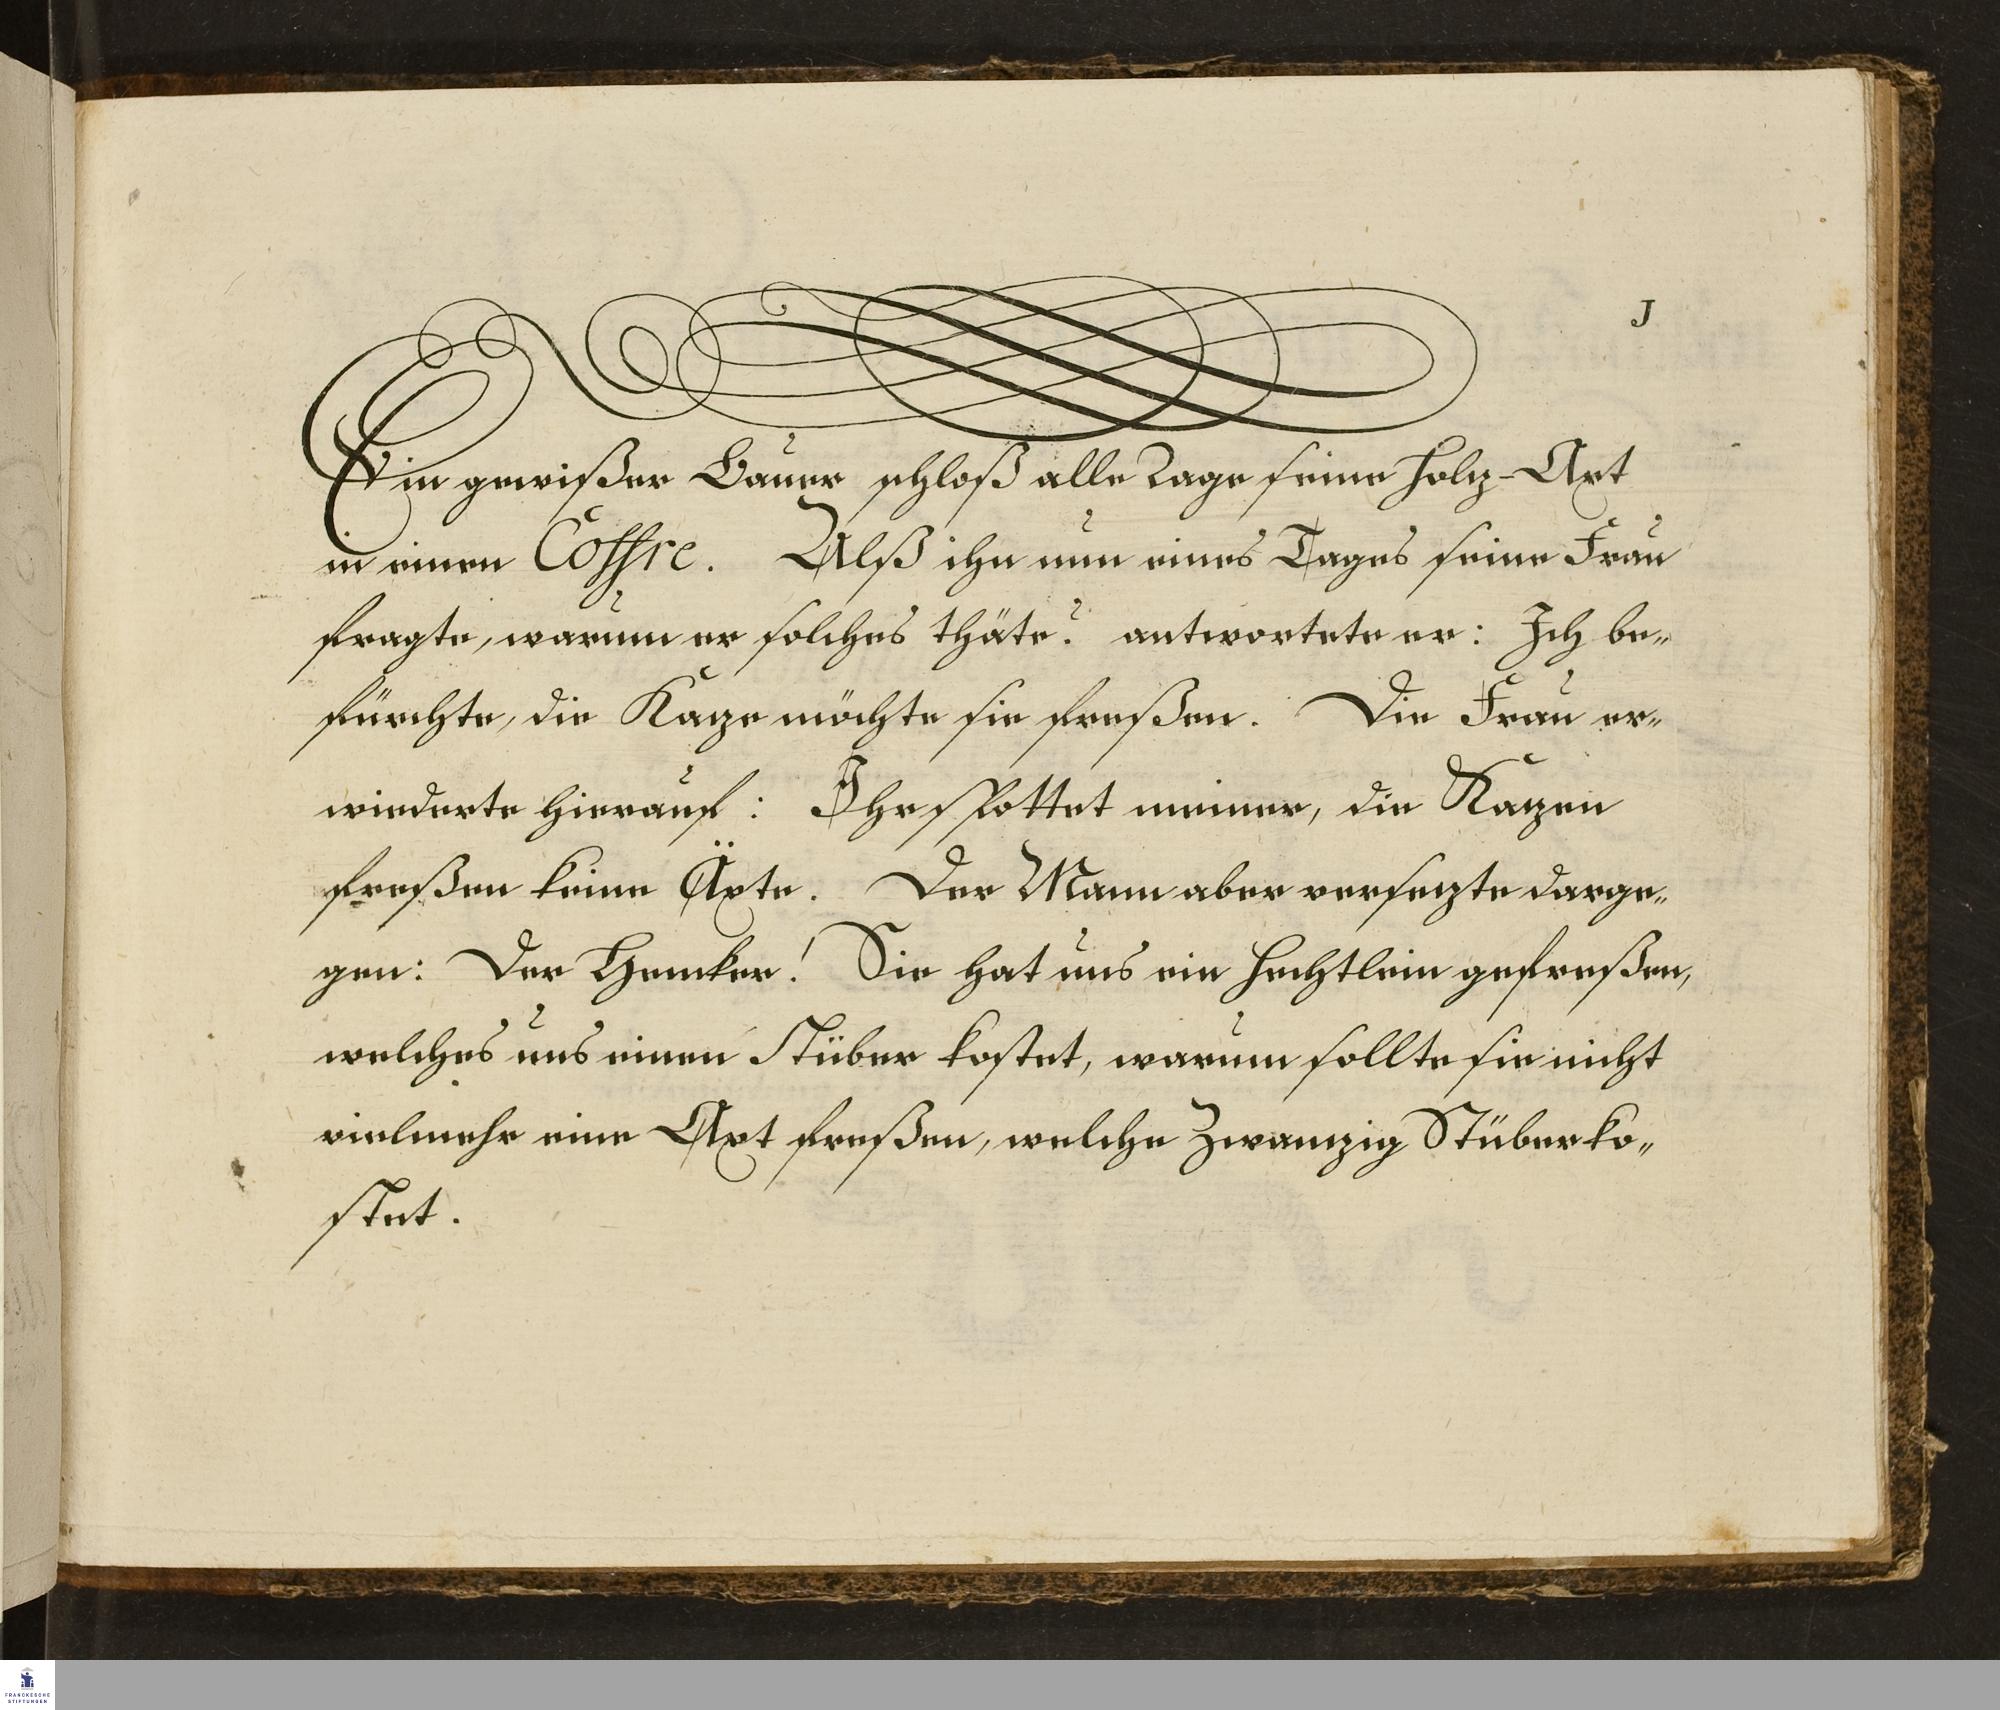 J
Ein gewißer Bauer schloß alle Tage seine Holtz-Axt
in einen Coffre. Alß ihn nun eines Tages seine Frau
fragte, warum er solches thäte? antwortete er: Ich be„
fürchte, die Katze möchte sie freßen. Die Frau er„
wiederte hierauf: Ihr spottet meiner, die Katzen
freßen keine Äxte. Der Mann aber versetzte darge„
gen: Der Hencker! Sie hat uns ein Hechtlein gefreßen,
welches uns einen Stüber kostet, warum sollte sie nicht
vielmehr eine Axt freßen, welche Zwantzig Stüber ko„
stet.
FRANCKESCHE
STIFTUNGEN